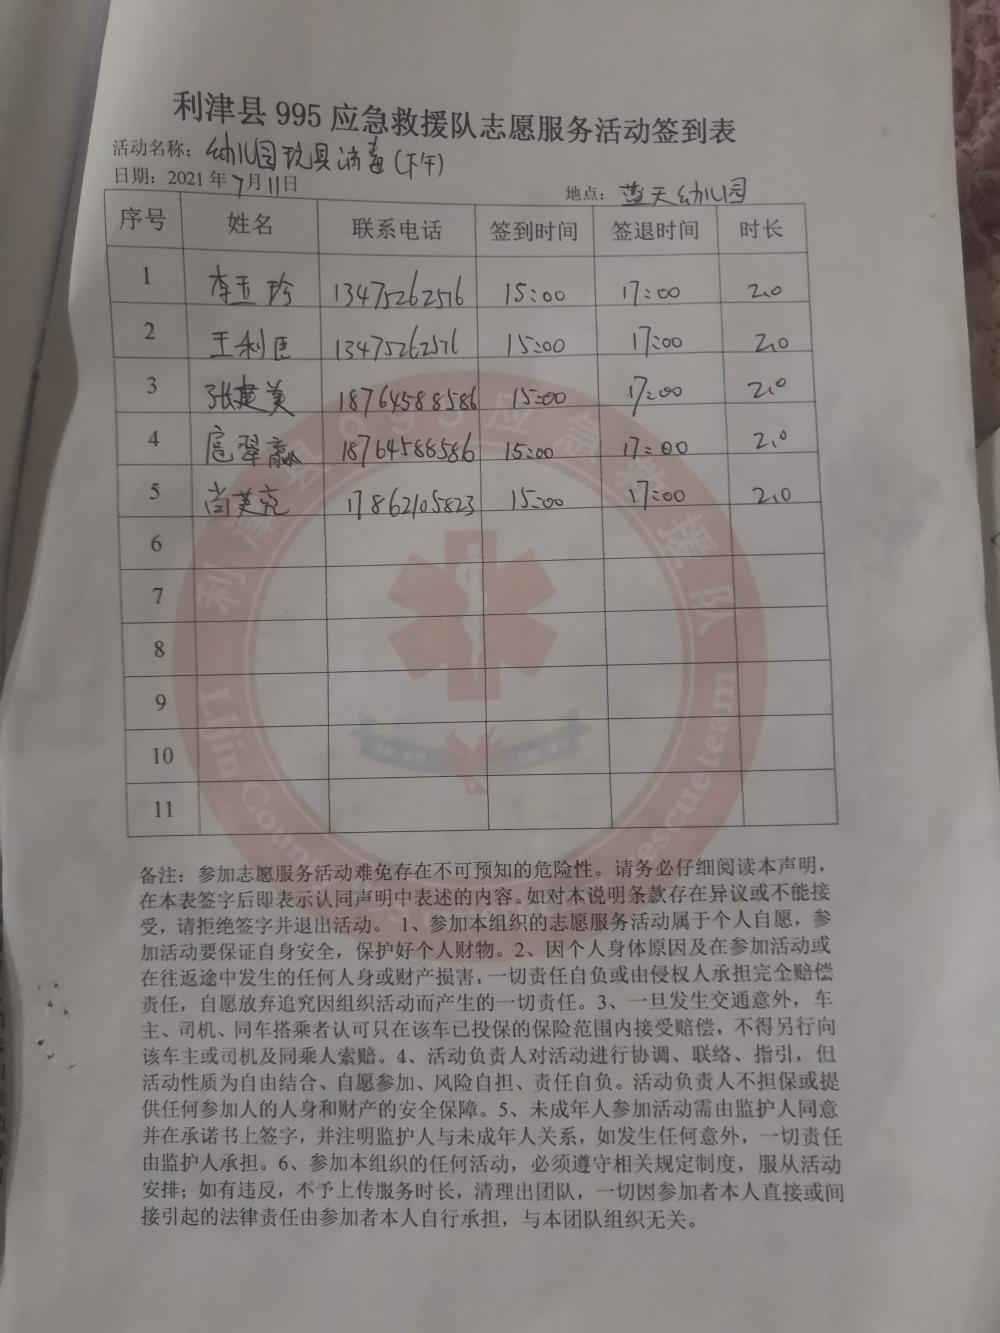 利津县 995 应急救援队志愿服务活动签到表
活动名称：幼儿园玩具消毒(下午)
日期：2021年7月11日 地点：蓝天幼儿园
序号 姓名 联系电话 签到时间 签退时间 时长
1 李玉珍 13475262576 15:00 17:00 2.0
2 王利臣 13475262576 15:00 17:00 2.0
3 张建美 18764588586 15:00 17:00 2.0
4 扈翠赢 18764588586 15:00 17:00 2.0
5 尚美亮 17862105823 15:00 17:00 2.0
6
7
8
9
10
11
利津县995应急救援队
Lijin County Rescue team
备注：参加志愿服务活动难免存在不可预知的危险性。请务必仔细阅读本声明，
在本表签字后即表示认同声明中表述的内容。如对本说明条款存在异议或不能接
受，请拒绝签字并退出活动。 1、参加本组织的志愿服务活动属于个人自愿，参
加活动要保证自身安全，保护好个人财物。2、因个人身体原因及在参加活动或
在往返途中发生的任何人身或财产损害，一切责任自负或由侵权人承担完全赔偿
责任，自愿放弃追究因组织活动而产生的一切责任。3、一旦发生交通意外，车
主、司机、同车搭乘者认可只在该车已投保的保险范围内接受赔偿，不得另行向
该车主或司机及同乘人索赔。4、活动负责人对活动进行协调、联络、指引，但
活动性质为自由结合、自愿参加、风险自担、责任自负。活动负责人不担保或提
供任何参加人的人身和财产的安全保障。5、未成年人参加活动需由监护人同意
并在承诺书上签字，并注明监护人与未成年人关系，如发生任何意外，一切责任
由监护人承担。6、参加本组织的任何活动，必须遵守相关规定制度，服从活动
安排；如有违反，不予上传服务时长，清理出团队，一切因参加者本人直接或间
接引起的法律责任由参加者本人自行承担，与本团队组织无关。